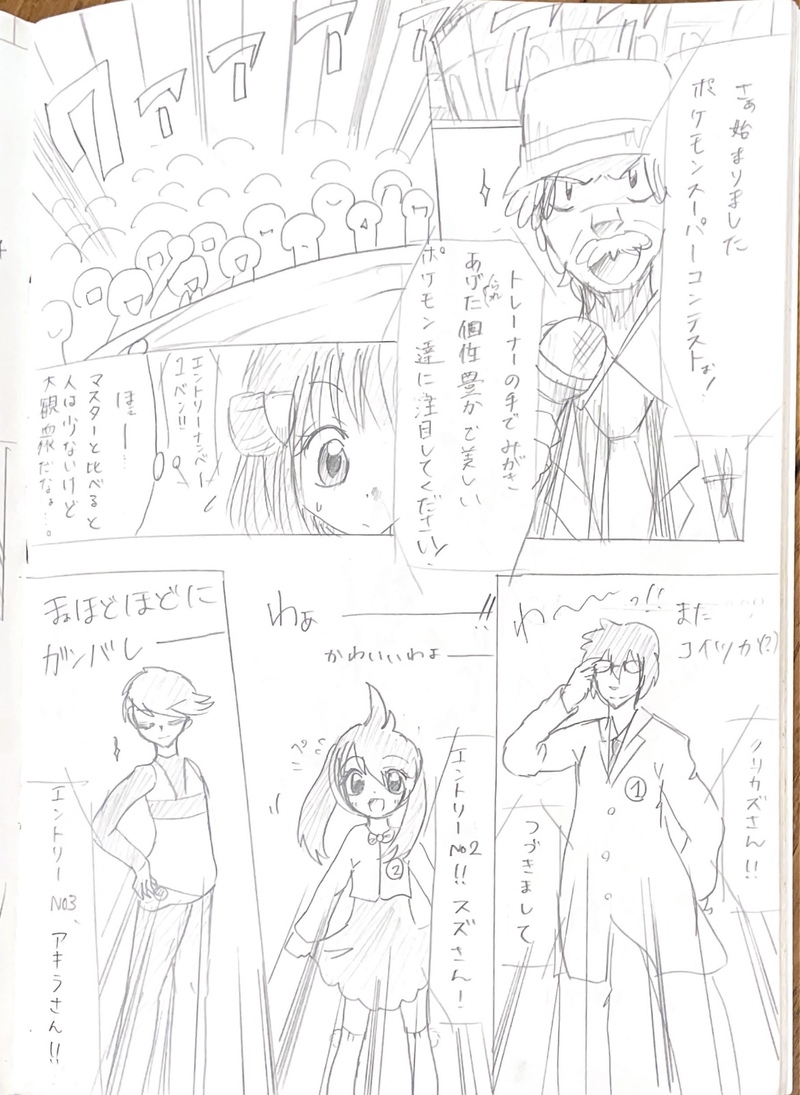 さぁ始まりました
ポケモンスーパーコンテストぉ!
ワアアアアア
トレーナーの手でみがき
あげ
られ
た個性豊かで美しい
ポケモン達に注目してください!
エントリーナンバー
1バン!!
ほぇー…
マスターと比べると
人は少ないけど
大観衆だなぁ…。
わ〜〜〜っ!!
また
コイツか(?)
クリカズさん!!
①
つづきまして
わぁ――!!
かわいいわよ――
エントリーNo2!!スズさん!
ペコ
②
まぁほどほどに
ガンバレ――
エントリーNo3、アキラさん!!